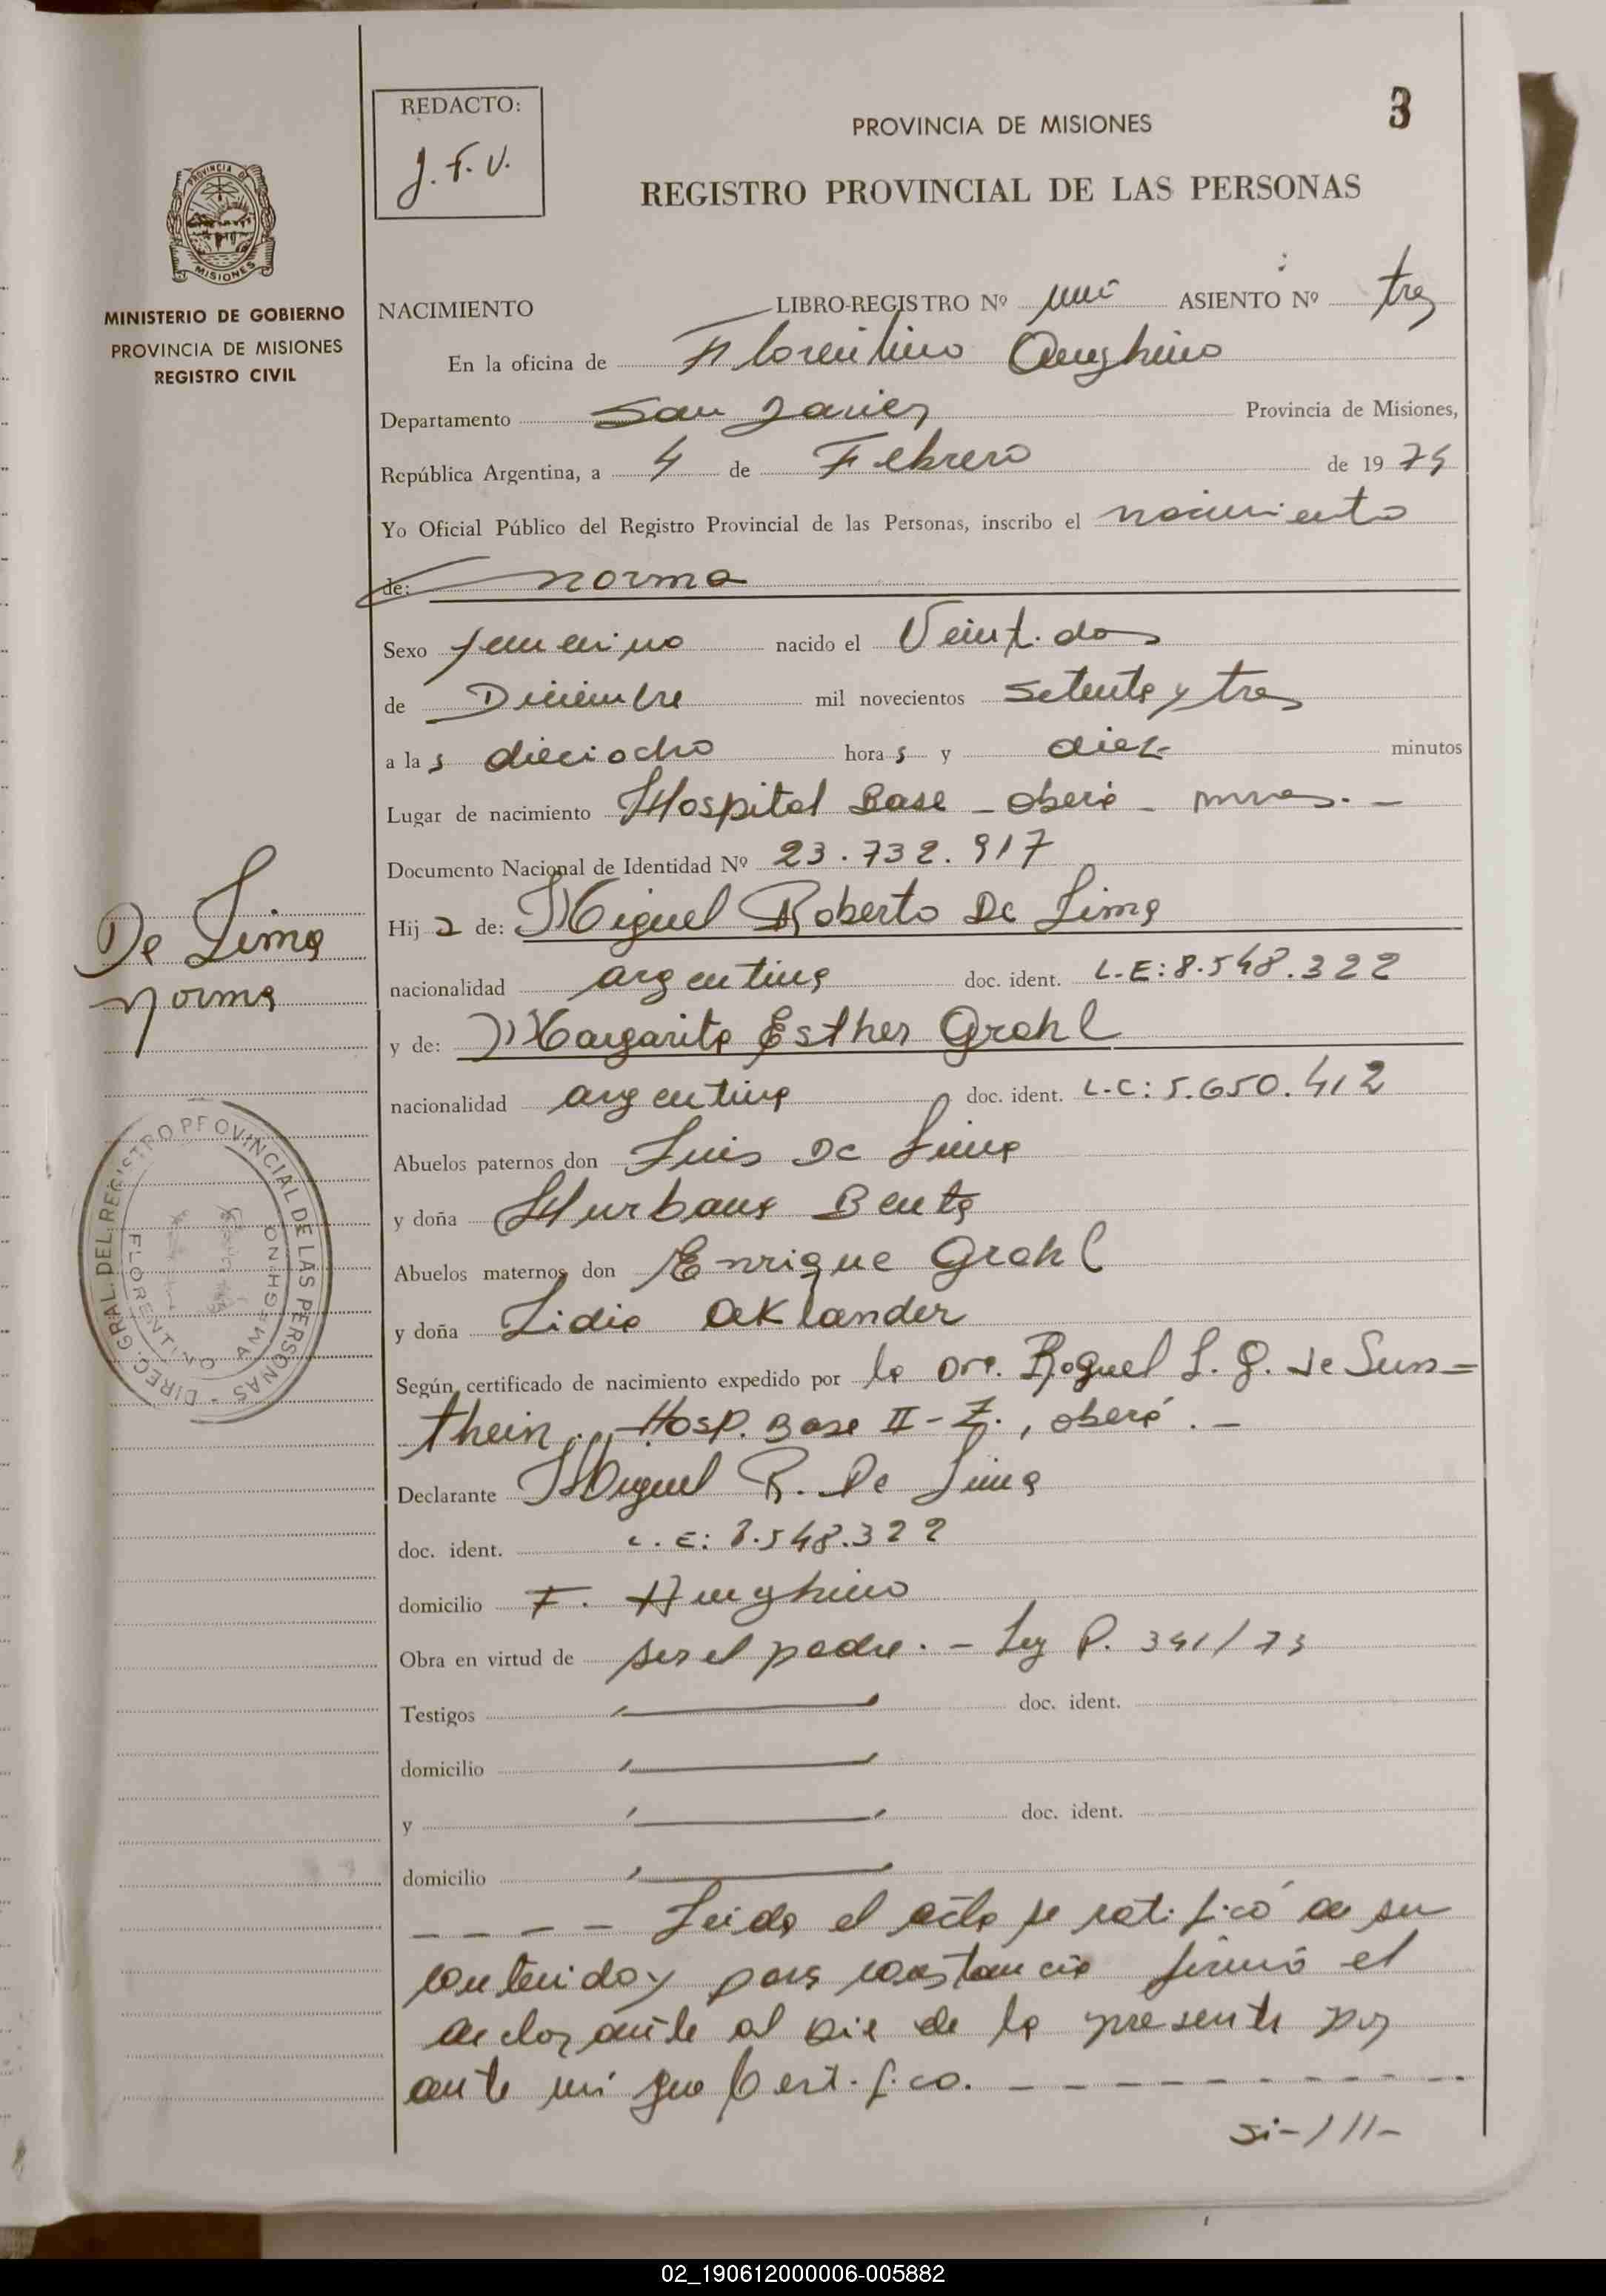 REDACTO:
J. F. V.
PROVINCIA DE MISIONES
3
REGISTRO PROVINCIAL DE LAS PERSONAS
PROVINCIA DE
MISIONES
MINISTERIO DE GOBIERNO
PROVINCIA DE MISIONES
REGISTRO CIVIL
NACIMIENTO LIBRO-REGISTRO Nº uno ASIENTO Nº tres
En la oficina de Florentino Ameghino
Departamento San Javier Provincia de Misiones,
República Argentina, a 4 de Febrero de 1974
Yo Oficial Público del Registro Provincial de las Personas, inscribo el nacimiento
de: Norma
Sexo femenino nacido el Veintidos
de Diciembre mil novecientos setenta y tres
a las dieciocho horas y diez minutos
Lugar de nacimiento Hospital Base - Oberá - Mnes. -
Documento Nacional de Identidad Nº 23.732.917
De Lima
Norma
Hija de: Miguel Roberto De Lima
nacionalidad argentina doc. ident. L.E: 8.548.322
y de: Margarita Esther Grahl
nacionalidad argentina doc. ident. L.C: 5.650.412
Abuelos paternos don Luis De Lima
y doña Hurbana Benta
Abuelos maternos don Enrique Grahl
y doña Lidia Oklander
Según certificado de nacimiento expedido por la Dra. Raquel L. G. de Sun=
thein. Hosp. Base II-Z., Oberá. -
Declarante Miguel R. De Lima
doc. ident. L.E: 8.548.322
domicilio F. Ameghino
Obra en virtud de ser el padre. - Ley P. 341/73
Testigos doc. ident.
domicilio
y doc. ident.
domicilio
- - - - Leida el acta se ratificó de su
contenido y para constancia firmó el
declarante al pie de la presente por
ante mi que Certifico. - - - - - - - - - -
si-///-
DIREC. GRAL. DEL REGISTRO PROVINCIAL DE LAS PERSONAS -
FLORENTINO AMEGHINO
02_190612000006-005882